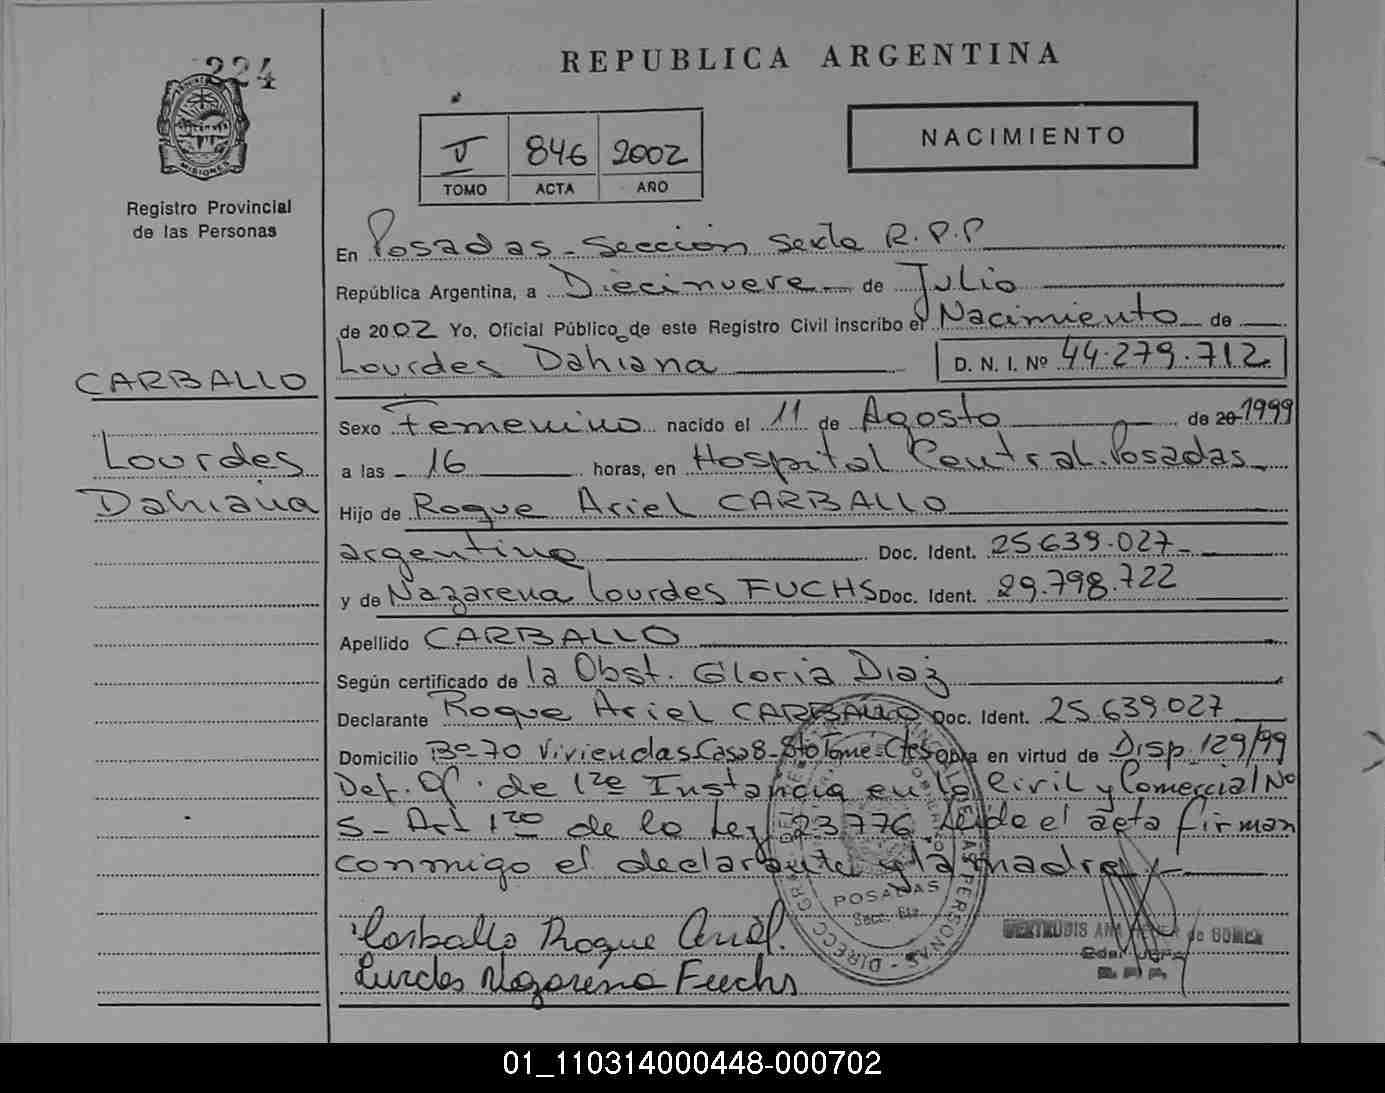 224
MISIONES
Registro Provincial
de las Personas
REPUBLICA ARGENTINA
V 846 2002
TOMO ACTA AÑO
NACIMIENTO
En Posadas - Sección Sexta R.P.P
República Argentina, a Diecinueve de Julio
de 2002 Yo, Oficial Público de este Registro Civil inscribo el Nacimiento de
Lourdes Dahiana D. N. I. Nº 44.279.712
CARBALLO
Lourdes
Dahiana
Sexo Femenino nacido el 11 de Agosto de 20 1999
a las 16 horas, en Hospital Central. Posadas
Hijo de Roque Ariel CARBALLO
argentino Doc. Ident. 25639.027
y de Nazarena Lourdes FUCHS Doc. Ident. 29.798.722
Apellido CARBALLO
Según certificado de la Obst. Gloria Diaz
Declarante Roque Ariel CARBALLO Doc. Ident. 25.639.027
Domicilio Bº 70 Viviendas Casa 8 - Sto Tomé - Ctes Obra en virtud de Disp. 129/99
Def. Of. de 1ra Instancia en lo Civil y Comercial Nº
5 - Art 1ro de la Ley 23776, Leída el acta firman
conmigo el declarante y la madre
POSADAS
Secc. 6ta
Carballo Roque Ariel.
Lurdes Nazarena Fuchs
GERTRUDIS de GOMEZ
01_110314000448-000702